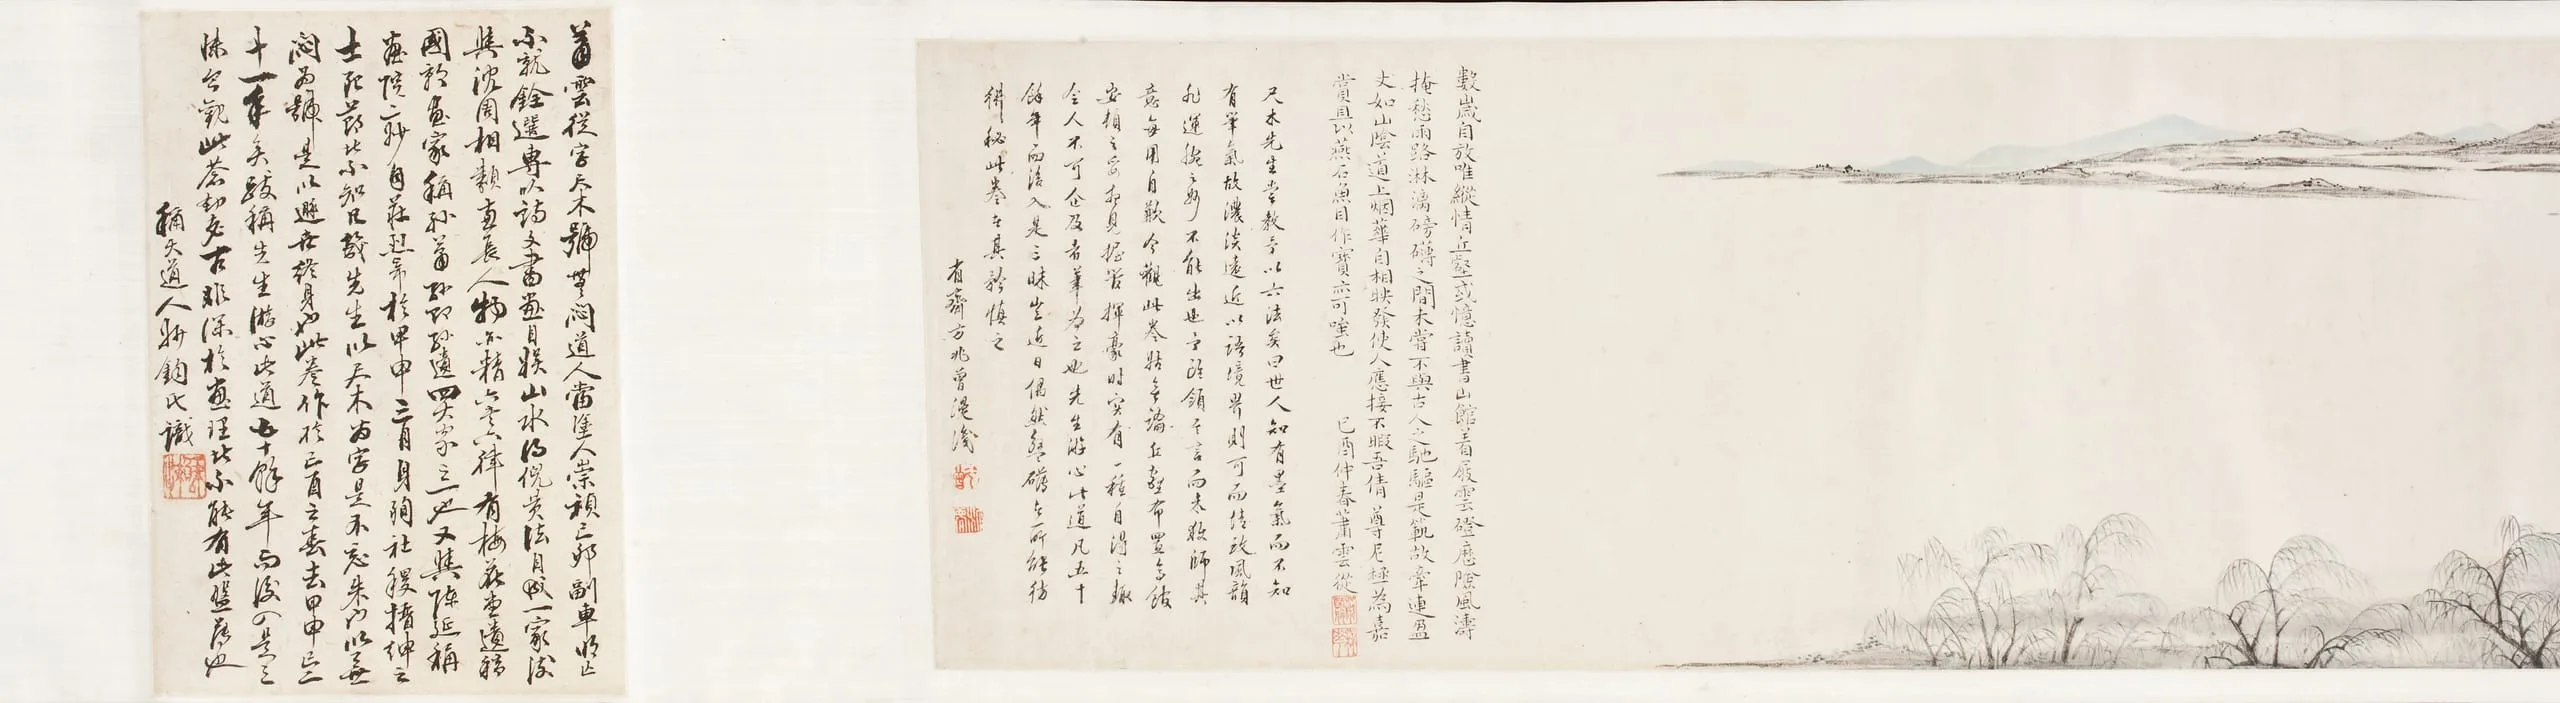 數歲自放唯縱情丘壑或憶讀書山館着屐雲磴應陰風濤
掩愁雨路淋漓磅礴之間未嘗不與古人之馳驅是範故牽連盈
丈如山陰道上烟華自相映發使人應接不暇吾倩尊尼極為嘉
賞且以燕石魚目作寶亦可嗤也 己酉仲春蕭雲從
尺木先生嘗教予以六法矣曰世人知有墨氣而不知
有筆氣故濃淡遠近以語境界則可而情致風韻
非運腕之妙不能出也予雖領其言而未敢師其
意每用自歉今觀此卷無論丘壑布置高
安頓之妥第見握管揮豪時實有一種自得之趣
令人不可企及者筆為之也先生游心此道凡五十
餘年而後入是三昧豈近日偶然磅礴之所能彷
彿秘此卷者其矜慎之
有齋方兆曾漫識
蕭雲從字尺木號無悶道人當塗人崇禎己卯副車明亡
不就銓選專以詩文書畫自娛山水得倪黃法自成一家致
與沈周相類直長人物亦精六書六律有梅花堂遺稿
國初畫家稱孫蕭孫即孫逸四大家之一也又與陳延稱
畫院二妙自莊烈帝於甲申三月身殉社稷搢紳之
士死節者不知凡幾先生以尺木為字是不忘朱門以無
悶為號是以遯世終身也此卷作於己酉之春去甲申已二
十一年矣跋稱先生游心此道五十餘年而後入是三
昧今觀此蒼勁老古非深於畫理者不能有此墨蹟也
稱大道人 鈞氏識